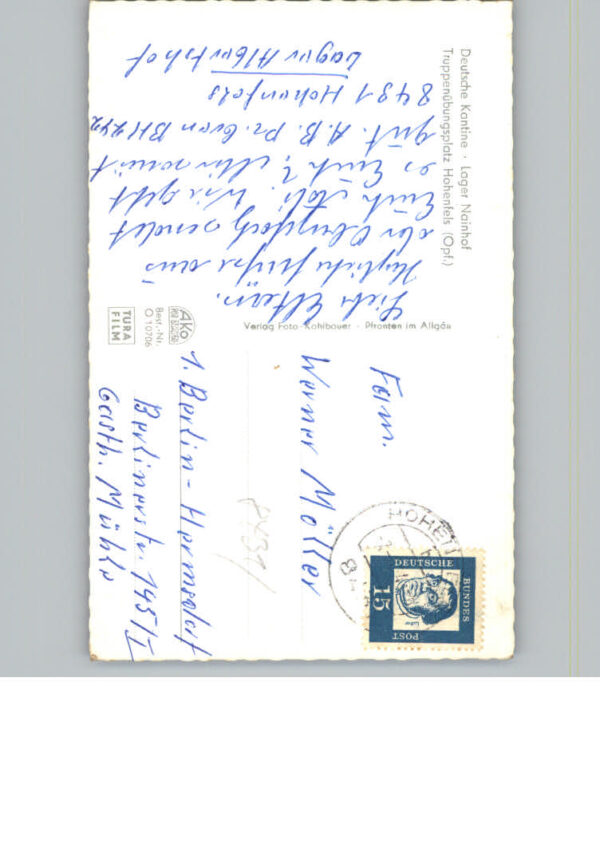 Deutsche Kantine · Lager Nainhof
Truppenübungsplatz Hohenfels (Opf.)
Liebe Eltern.
Herzliche Grüße aus
der Oberpfalz sendet
Euch Wie geht
es Euch?, Mir soweit
gut. A.B. Pz.
8431 Hohenfels
Lager Albertshof
Verlag Foto-Kohlbauer · Pfronten im Allgäu
Ako
Best.-Nr.
O 10706
TURA
FILM
Fam.
Werner Möller
1. Berlin-Hermsdorf
Berlinerstr. 145/I
Gasth. Mühle
8431
HOHEN
DEUTSCHE
BUNDES
POST
15
Luther